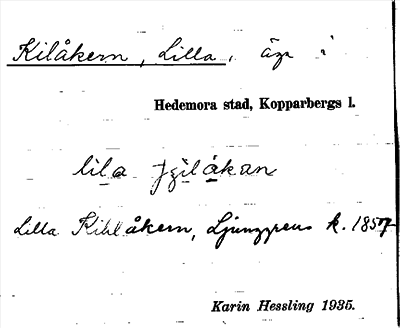 Kilåkern, Lilla, äga i
Hedemora stad, Kopparbergs l.
lila
Lilla Kihlåkern, Ljunggrens k. 1857
Karin Hessling 1935.